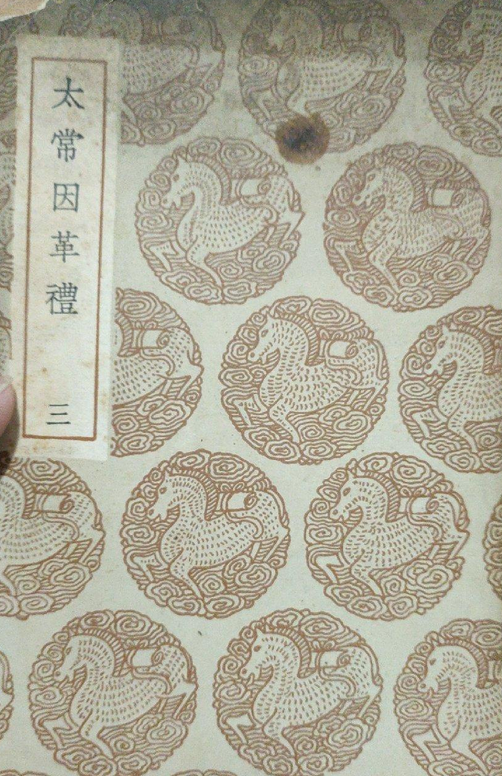 太常因革禮 三